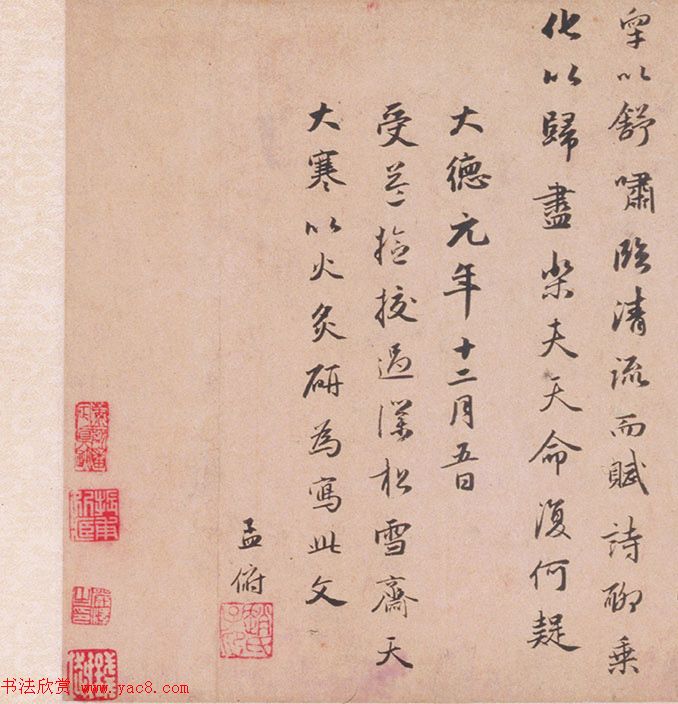 皐以舒嘯臨清流而賦詩聊乗
化以歸盡樂夫天命復何疑
大德元年十二月五日
受益撿挍過僕松雪齋天
大寒以火炙研為寫此文
孟俯
趙氏子昂
书法欣赏 www.yac8.com